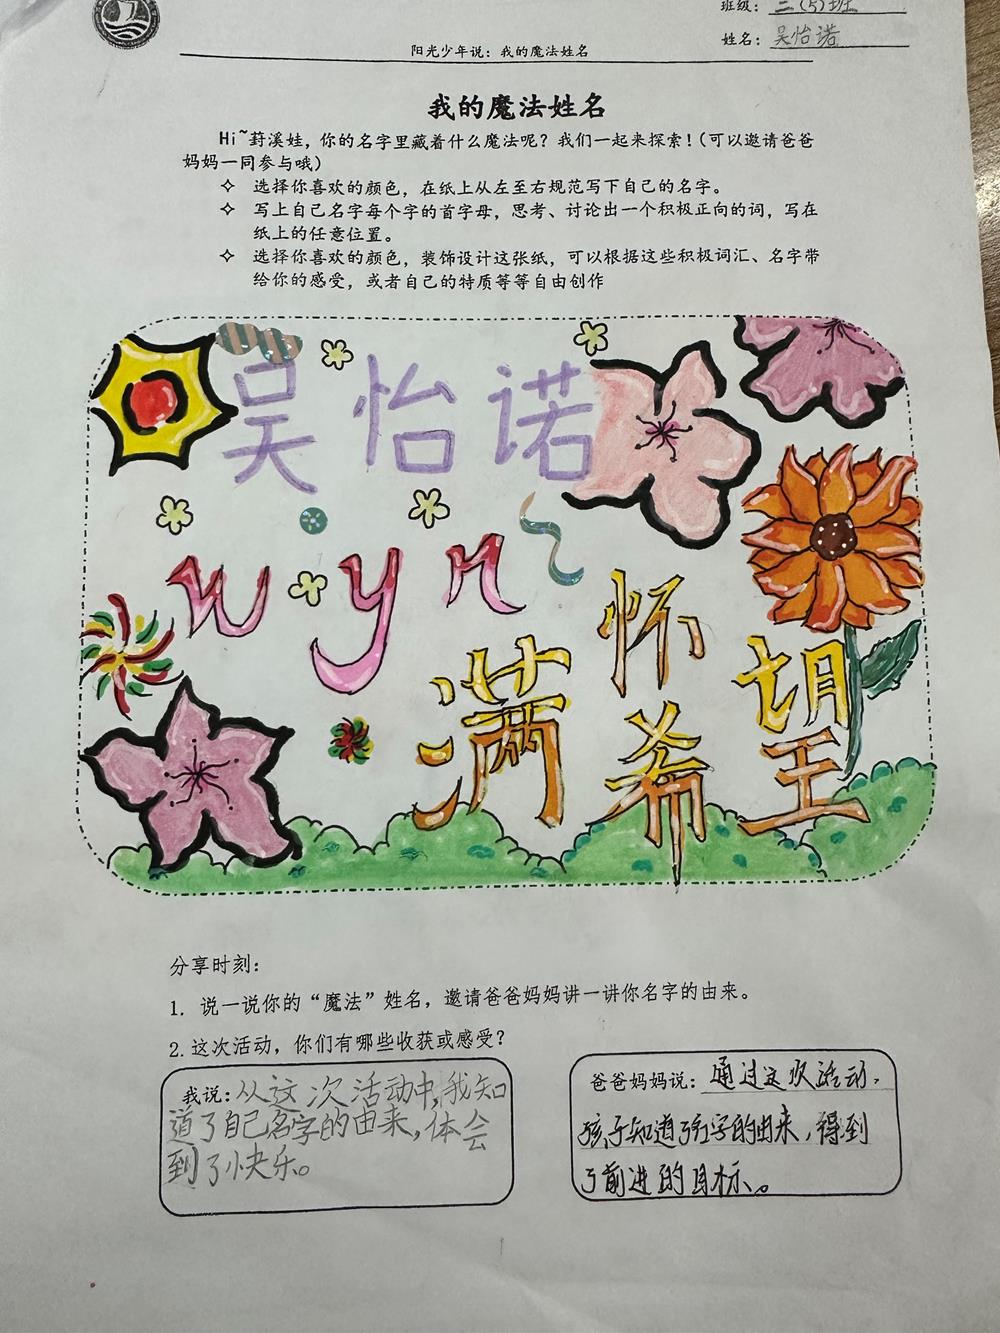 班级：三(5)班
姓名：吴怡诺
阳光少年说：我的魔法姓名
我的魔法姓名
Hi~葑溪娃，你的名字里藏着什么魔法呢？我们一起来探索！(可以邀请爸爸
妈妈一同参与哦)
✧ 选择你喜欢的颜色，在纸上从左至右规范写下自己的名字。
✧ 写上自己名字每个字的首字母，思考、讨论出一个积极正向的词，写在
纸上的任意位置。
✧ 选择你喜欢的颜色，装饰设计这张纸，可以根据这些积极词汇、名字带
给你的感受，或者自己的特质等等自由创作
吴怡诺
w y n
满怀希望
分享时刻：
1. 说一说你的“魔法”姓名，邀请爸爸妈妈讲一讲你名字的由来。
2.这次活动，你们有哪些收获或感受？
我说：从这次活动中,我知
道了自己名字的由来,体会
到了快乐。
爸爸妈妈说：通过这次活动,
孩子知道了名字的由来,得到
了前进的目标。